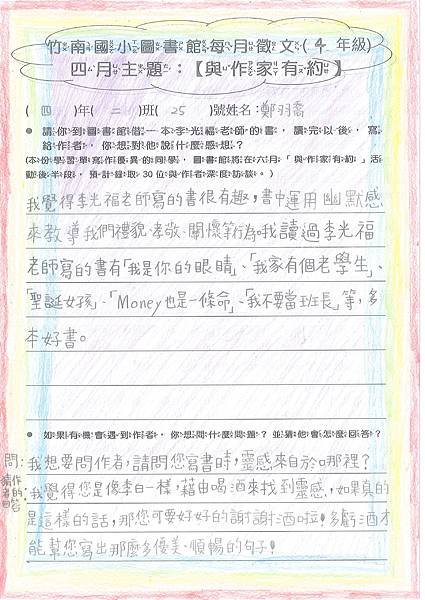 竹南國小圖書館每月徵文(4 年級)
四月主題：【與作家有約】
( 四 )年( 二 )班( 25 )號姓名：鄭羽喬
● 請你到圖書館借一本李光福老師的書，讀完以後，寫
給作者，你想對他說什麼感想？
(本份學習單寫作優異的同學，圖書館將在六月「與作家有約」活
動後半段，預計錄取30位與作者深度訪談。)
我覺得李光福老師寫的書很有趣，書中運用幽默感
來教導我們禮貌、孝敬、關懷等行為。我讀過李光福
老師寫的書有「我是你的眼睛」、「我家有個老學生」、
「聖誕女孩」、「Money也是一條命」、「我不要當班長」等，多
本好書。
● 如果有機會遇到作者，你想問什麼問題？並猜他會怎麼回答？
問：我想要問作者，請問您寫書時，靈感來自於哪裡？
猜作者的回答：我覺得您是像李白一樣，藉由喝酒來找到靈感，如果真的
是這樣的話，那您可要好好的謝謝酒啦！多虧酒才
能幫您寫出那麼多優美、順暢的句子！